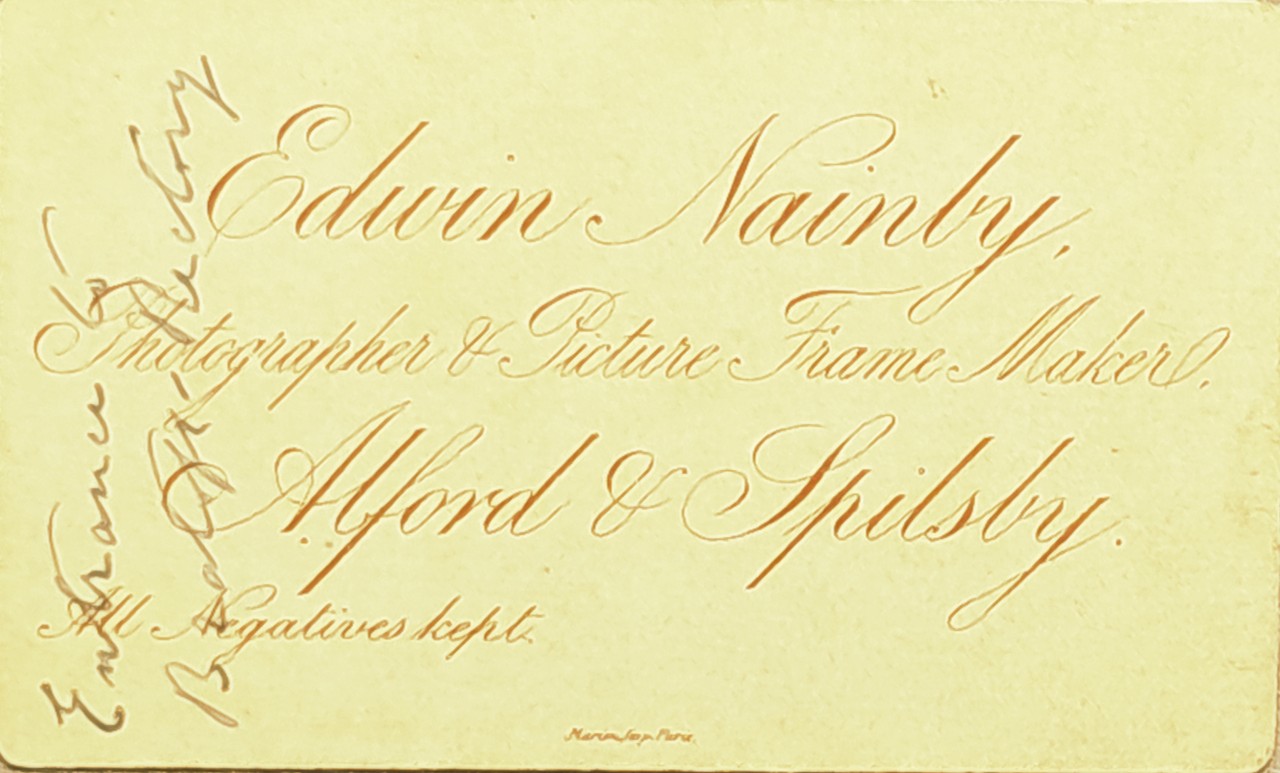 Edwin Nainby,
Photographer & Picture Frame Maker.
Alford & Spilsby.
All Negatives kept.
Marion Imp. Paris.
Entrance to